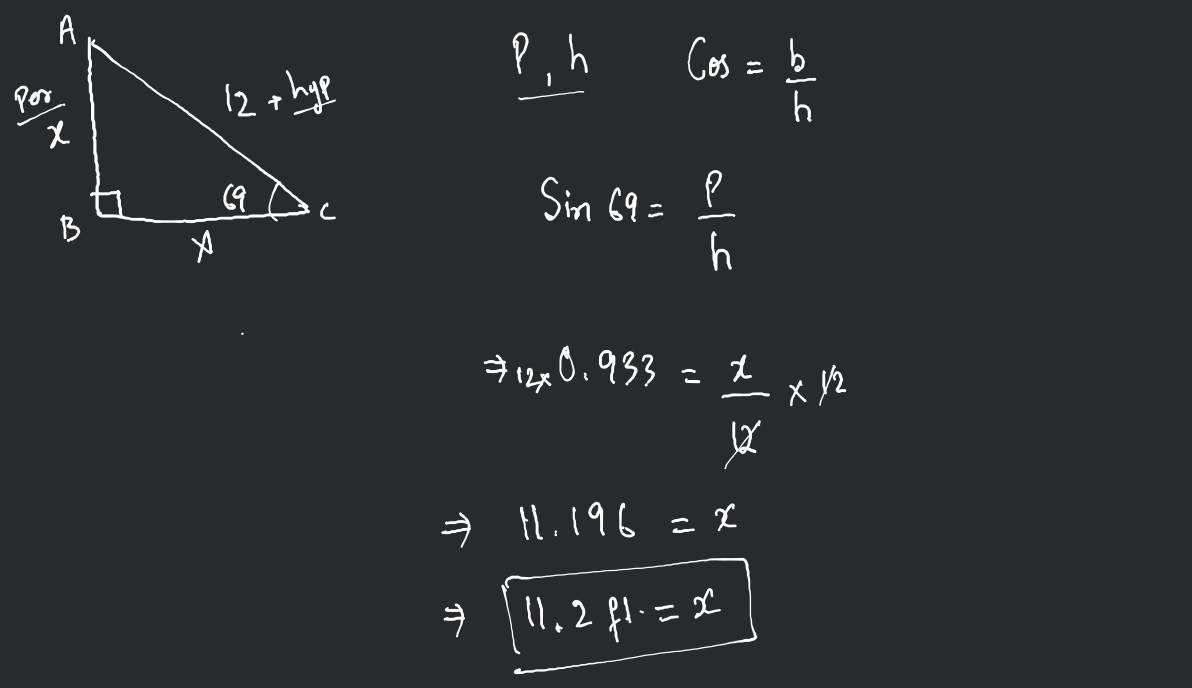 A
Per
x
12 → hyp
69
B
C
P, h
Cos = b/h
Sin 69 = P/h
⇒ 12× 0.933 = x/12 × 12
⇒ 11.196 = x
⇒ 11.2 ft. = x